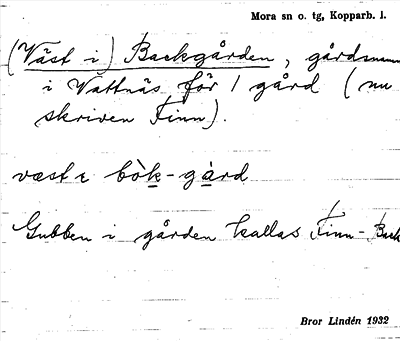 Mora sn o. tg, Kopparb. l.
(Väst i) Backgården, gårdsnamn
i Vattnäs för 1 gård (nu
skriven Finn).
væst ɪ bòk-gàrd
Gubben i gården kallas Finn-Back
Bror Lindén 1932